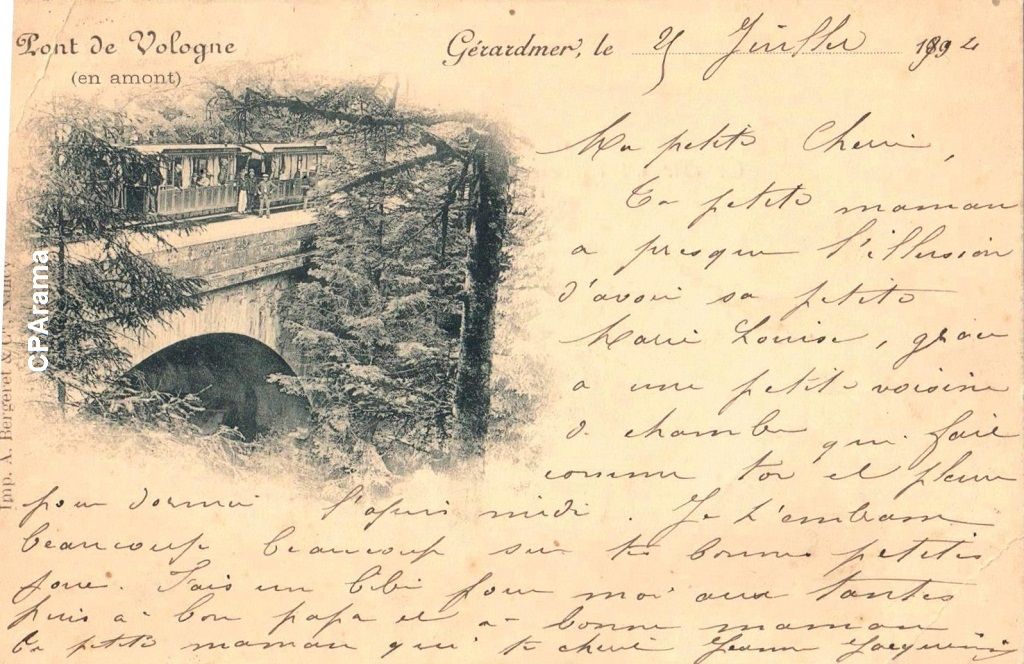 Pont de Vologne
(en amont)
Gérardmer, le 25 Juillet 189
Ma petite Cherie,
Ta petite maman
a presque l'illusion
d'avoir sa petite
Marie Louise, grâce
a une petite voisine
de chambre qui fait
comme toi et pleure
pour dormir l'apres midi. Je t'embrasse
beaucoup beaucoup sur tes bonnes petites
joues. Fais un bibi pour moi aux tantes
puis à bon papa et a bonne maman
Ta petite maman qui te cherit Jeanne
Imp. A. Bergeret &
CPArama